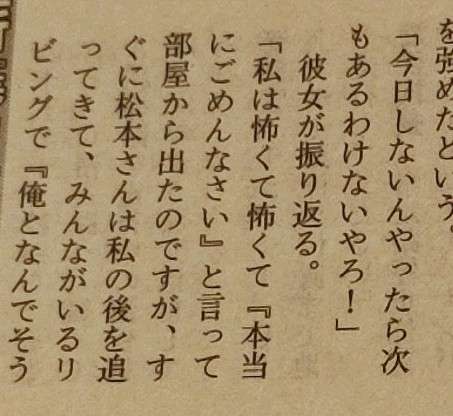 を強めたという。
「今日しないんやったら次
もあるわけないやろ！」
彼女が振り返る。
「私は怖くて怖くて『本当
にごめんなさい』と言って
部屋から出たのですが、す
ぐに松本さんは私の後を追
ってきて、みんながいるリ
ビングで『俺となんでそう